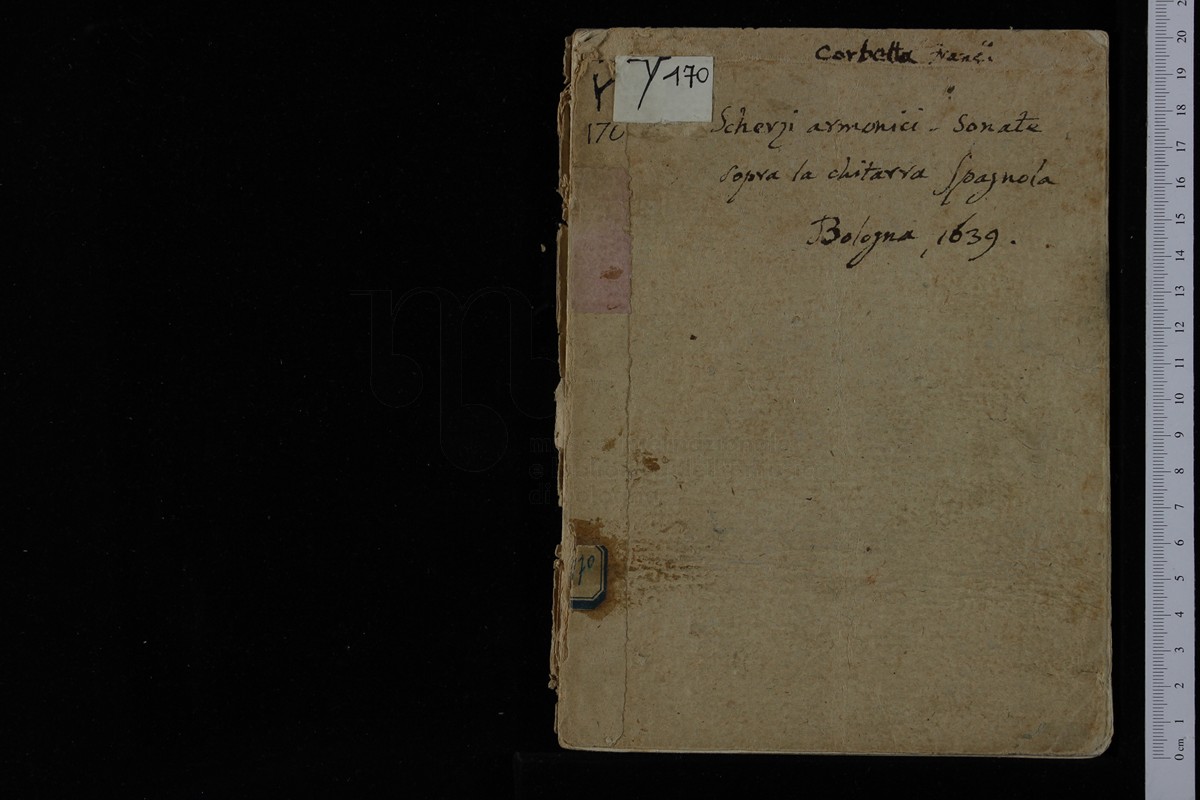 Corbetta
Y 170
Y
170
Scherzi armonici - Sonate
sopra la chitarra Spagnola
Bologna, 1639.
70
0 cm 1 2 3 4 5 6 7 8 9 10 11 12 13 14 15 16 17 18 19 20